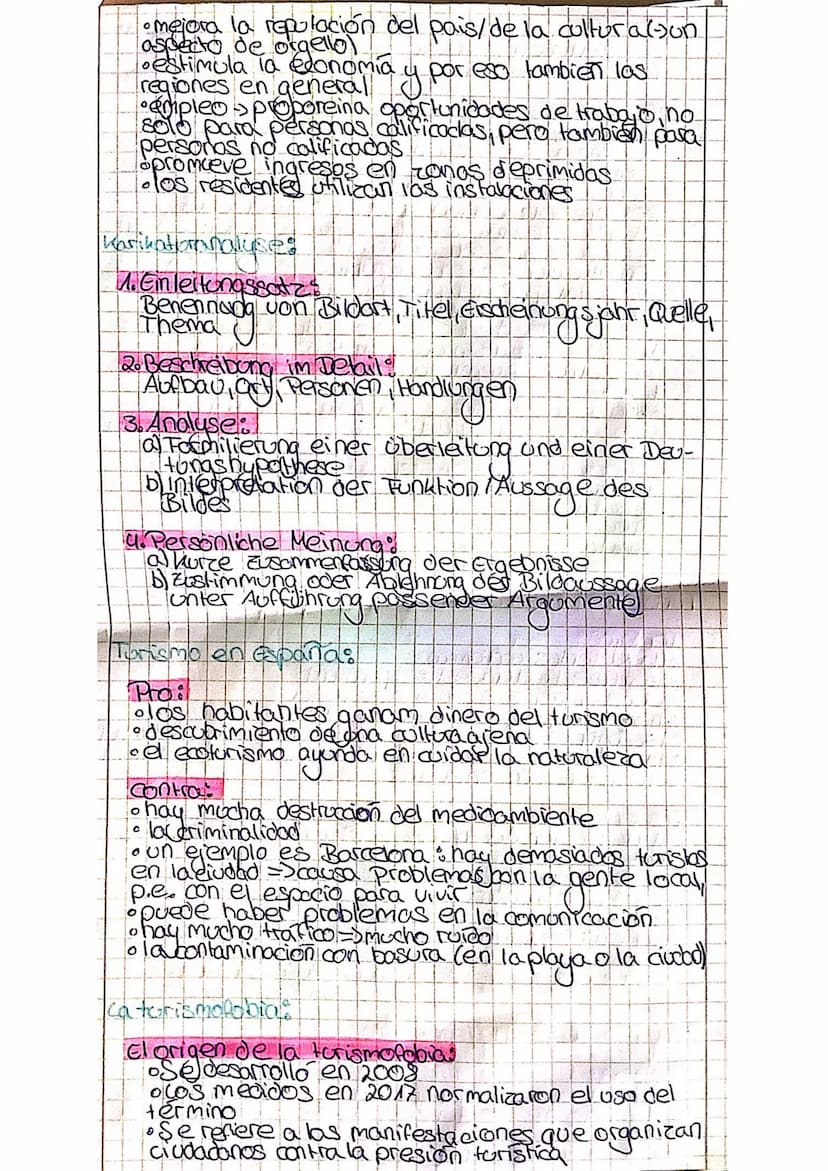 •mejora la reputación del pais/de la cultura(→un
aspecto de orgello)
•estimula la economía y por eso también las
regiones en general
•empleo → proporeina oportunidades de trabajo, no
solo para personas calificadas, pero también para
personas no calificadas
•promueve ingresos en zonas deprimidas
•los residentes utilizan las instalaciones
Karikaturanalyse:
1. Einleitungssatz:
Benennung von Bildart, Titel, Erscheinungsjahr, Quelle,
Thema
2. Beschreibung im Detail:
Aufbau, Ort, Personen, Handlungen
3. Analyse:
a) Formulierung einer Überleitung und einer Deu-
tungshypothese
b) Interpretation der Funktion/Aussage des
Bildes
4. Persönliche Meinung:
a) Kurze Zusammenfassung der Ergebnisse
b) Zustimmung oder Ablehnung der Bildaussage
(unter Aufführung passender Argumente)
Turismo en España:
Pro:
•los habitantes ganam dinero del turismo
•descubrimiento de una cultura ajena
•el ecoturismo ayunda en cuidar la naturaleza
Contra:
•hay mucha destrucción del medioambiente
•la criminalidad
•un ejemplo es Barcelona: hay demasiados turistas
en la ciudad => causa problemas con la gente local,
p.e. con el espacio para vivir
•puede haber problemas en la comunicación
•hay mucho tráfico => mucho ruido
•la contaminación con basura (en la playa o la ciudad)
La turismofobia:
El origen de la turismofobia:
•Se desarrolló en 2008
•Los medidos en 2017 normalizaron el uso del
término
•Se refiere a las manifestaciones que organizan
ciudadanos contra la presión turística